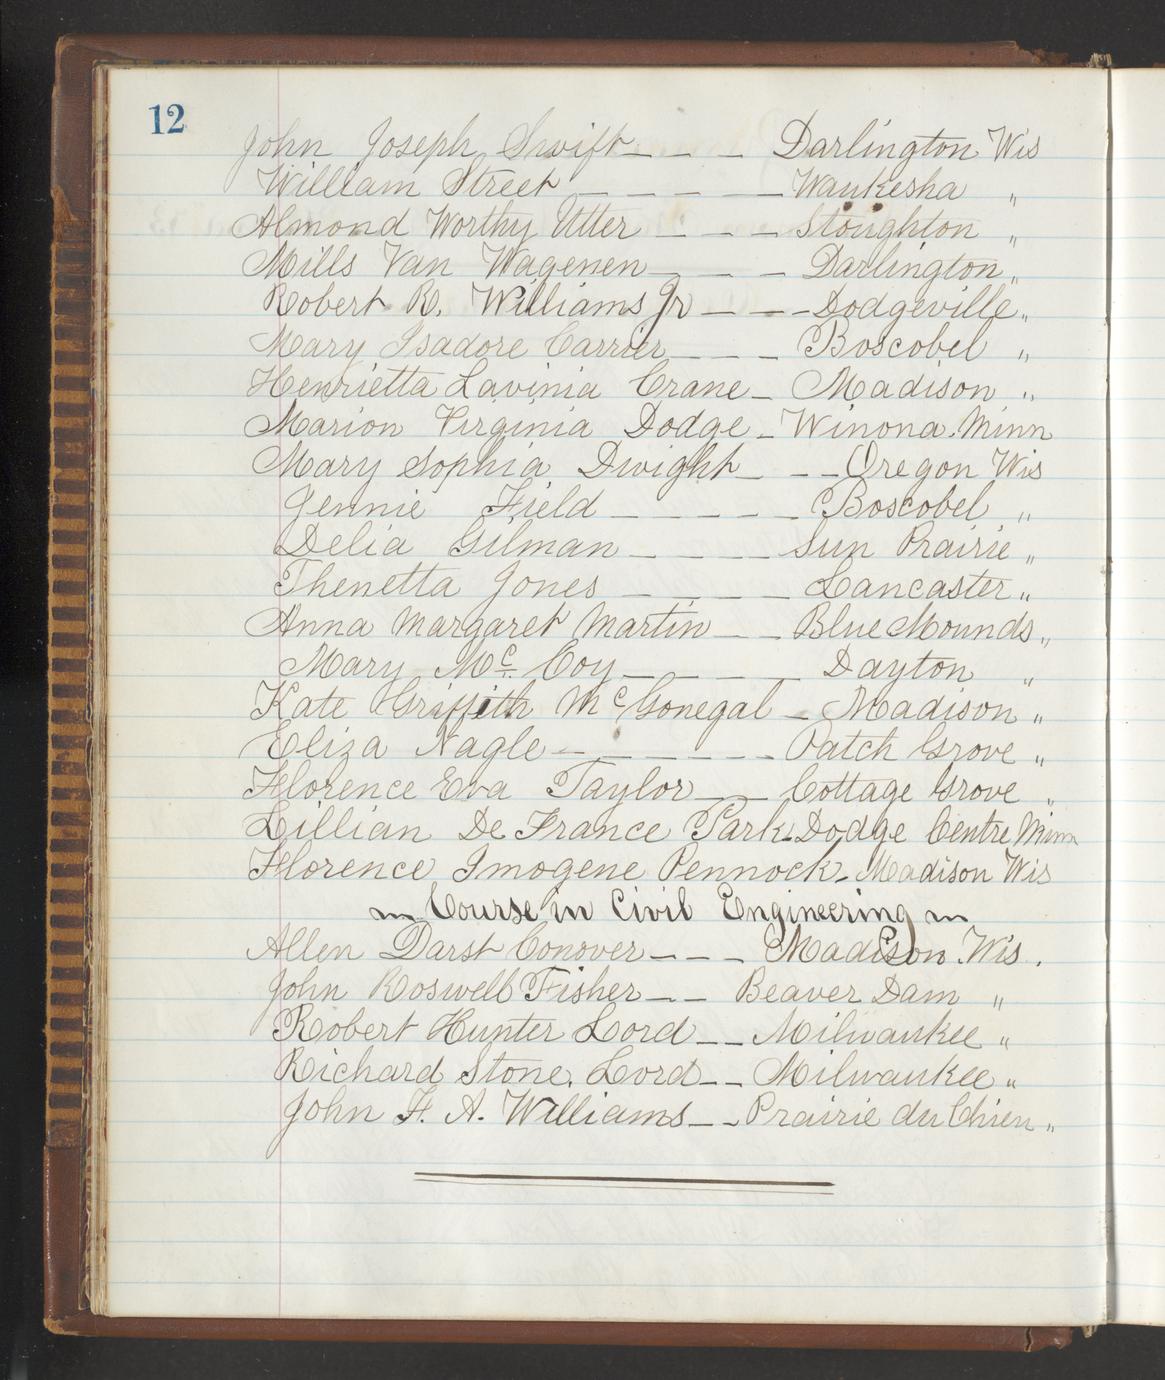 12
John Joseph Swift _ _ _ Darlington Wis
William Street _ _ _ _ Waukesha "
Almond Worthy Utter _ _ _ Stoughton "
Mills Van Wagenen _ _ _ Darlington "
Robert R. Williams Jr _ _ _ Dodgeville "
Mary Isadore Carrier _ _ _ Boscobel "
Henrietta Lavinia Crane _ Madison "
Marion Virginia Dodge _ Winona. Minn
Mary Sophia Dwight _ _ _ Oregon Wis
Jennie Field _ _ _ _ _ Boscobel "
Delia Gilman _ _ _ _ Sun Prairie "
Thenetta Jones _ _ _ _ Lancaster "
Anna Margaret Martin _ _ Blue Mounds "
Mary Mc. Coy _ _ _ _ _ Dayton "
Kate Griffith McGonegal _ Madison "
Eliza Nagle _ _ _ _ _ _ Patch Grove "
Florence Eva Taylor _ _ Cottage Grove "
Lillian De France Park _ Dodge Centre Minn
Florence Imogene Pennock _ Madison Wis
Course in Civil Engineering
Allen Darst Conover _ _ _ Madison. Wis.
John Roswell Fisher _ _ Beaver Dam "
Robert Hunter Lord _ _ Milwaukee "
Richard Stone. Lord _ _ Milwaukee "
John F. A. Williams _ _ Prairie du Chien "